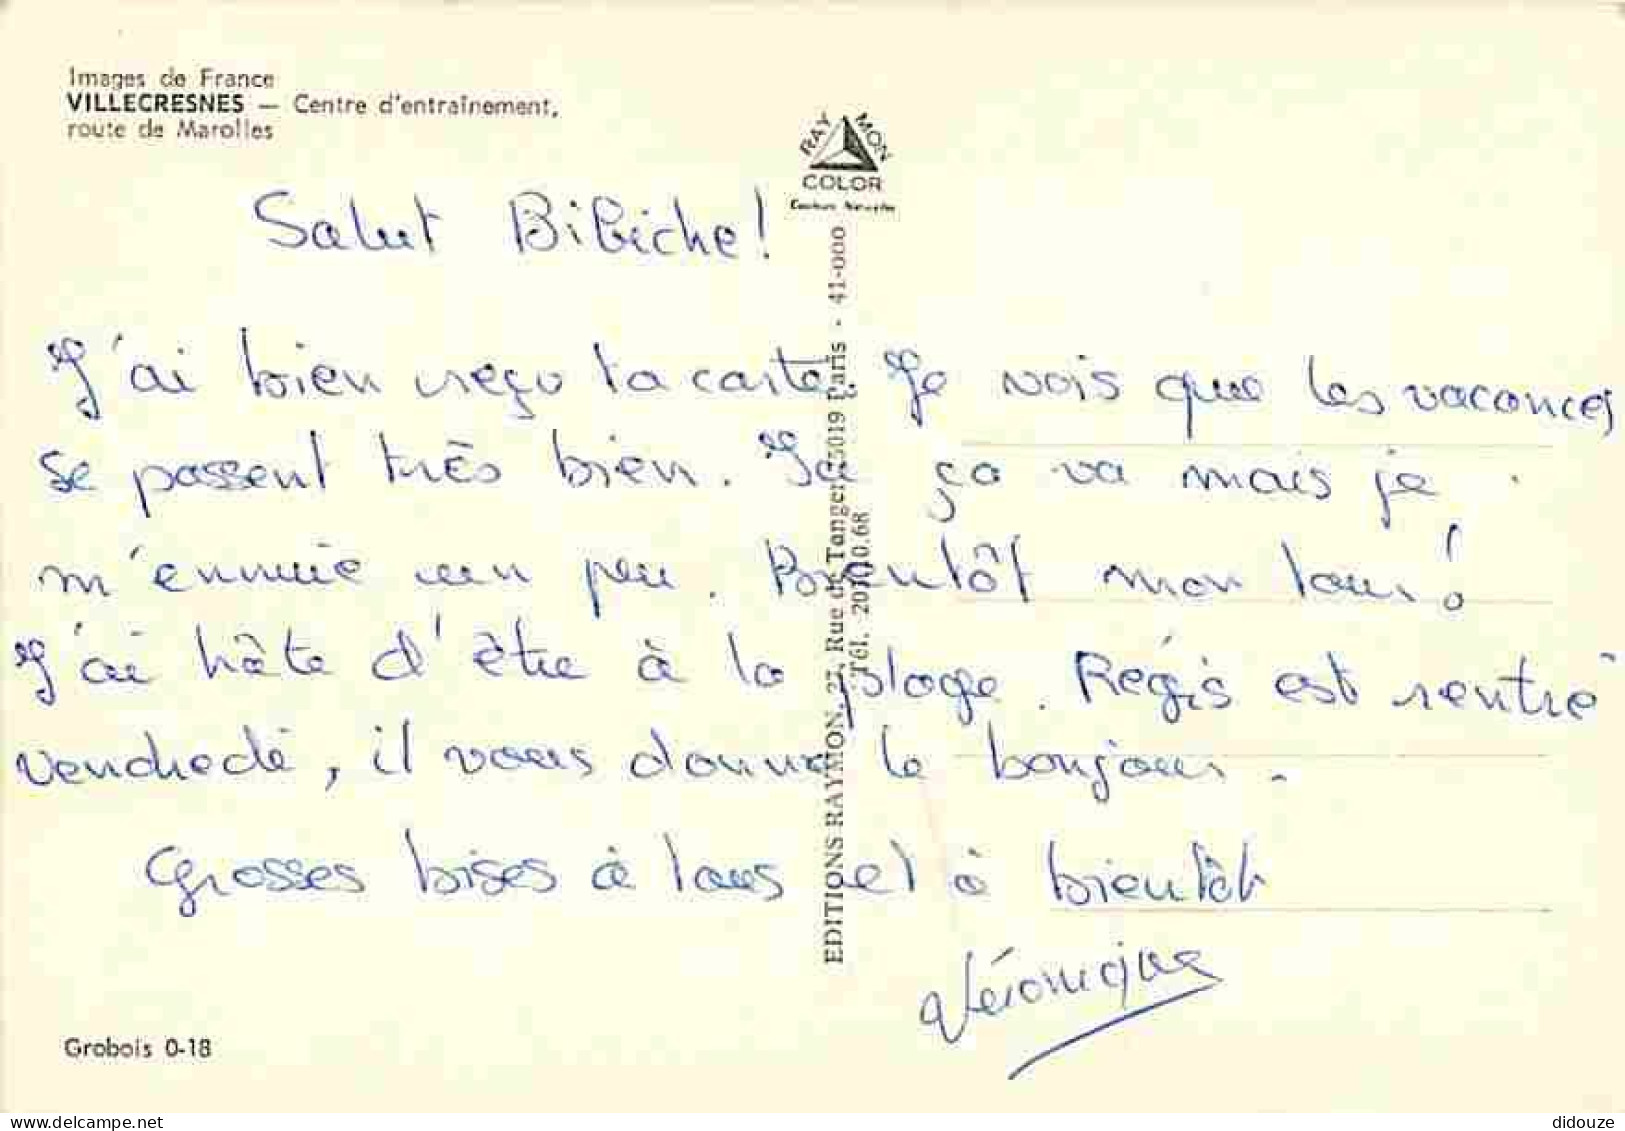 Images de France
VILLECRESNES — Centre d'entraînement,
route de Marolles
RAYMON
COLOR
Couleurs Naturelles
Salut Bibiche!
J'ai bien reçu ta carte. Je vois que les vacances
se passent très bien. Ici ça va mais je
m'ennuie un peu. Bientôt mon tour!
J'ai hâte d'être à la plage. Régis est rentré
vendredi, il vous donne le bonjour.
Grosses bises à tous et à bientôt
Véronique
EDITIONS RAYMON, 27, Rue de Tanger 75019 Paris - 41-000
Grobois 0-18
delcampe.net
didouze